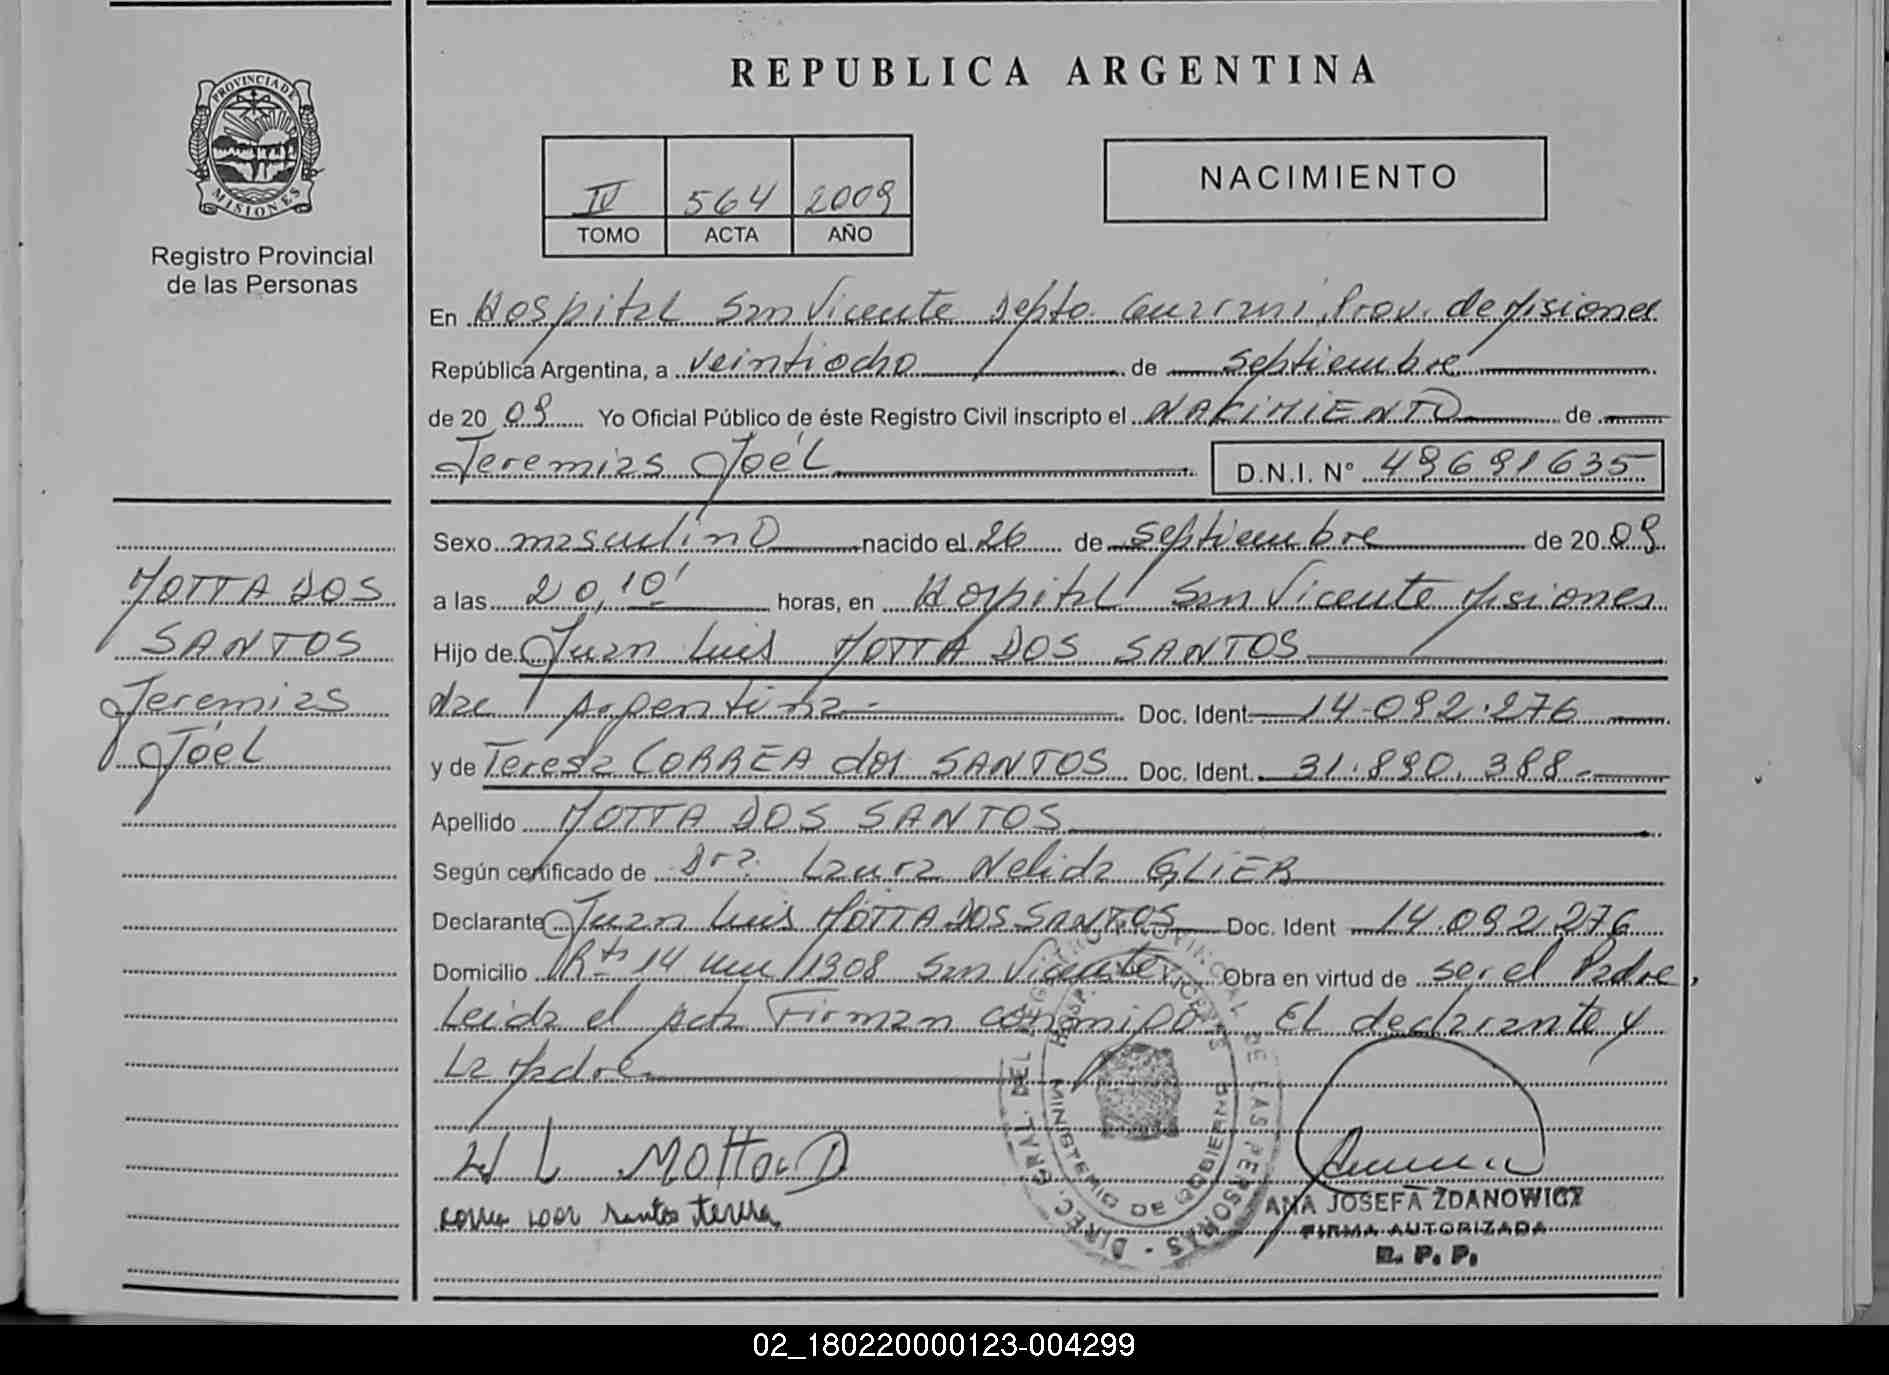 REPUBLICA ARGENTINA
PROVINCIA DE
MISIONES
Registro Provincial
de las Personas
IV 564 2009
TOMO ACTA AÑO
NACIMIENTO
En Hospital San Vicente Depto. Guaraní, Prov. de Misiones
República Argentina, a veintiocho de septiembre
de 20 09 Yo Oficial Público de éste Registro Civil inscripto el NACIMIENTO de
Jeremías Joél D.N.I. N° 49691635
Sexo masculino nacido el 26 de septiembre de 20 09
a las 20,10' horas, en Hospital San Vicente Misiones
Hijo de Juan Luis MOTTA DOS SANTOS
Argentina Doc. Ident. 14.092.276
y de Teresa CORREA dos SANTOS Doc. Ident. 31.890.388
Apellido MOTTA DOS SANTOS
Según certificado de Dra. Laura Nelida GLIER
Declarante Juan Luis MOTTA DOS SANTOS Doc. Ident 14.092.276
Domicilio Rta 14 km 1308 San Vicente Obra en virtud de ser el Padre,
Leida el acta Firman conmigo El declarante y
La Madre
MOTTA DOS
SANTOS
Jeremias
Jóel
L Motta D
santos teresa
DIREC. GRAL. DEL REGISTRO PROVINCIAL DE LAS PERSONAS
MINISTERIO DE GOBIERNO
ANA JOSEFA ZDANOWICZ
FIRMA AUTORIZADA
R. P. P.
02_180220000123-004299